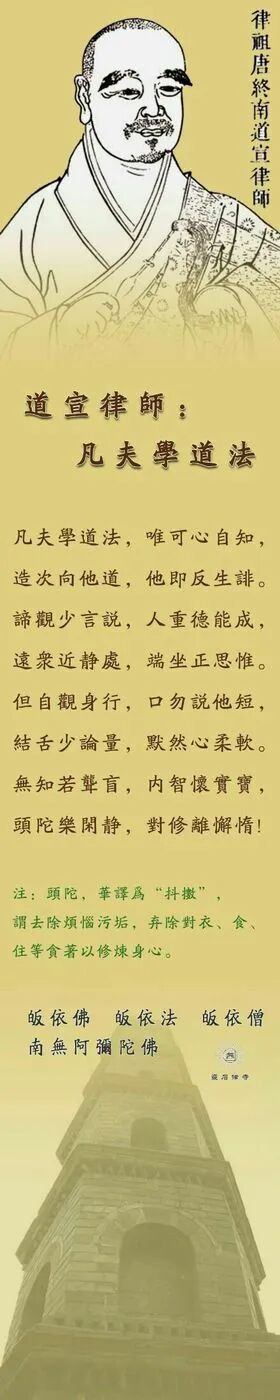 律祖唐終南道宣律師
道宣律師：
凡夫學道法
凡夫學道法，唯可心自知，
造次向他道，他即反生誹。
諦觀少言説，人重德能成，
遠衆近静處，端坐正思惟。
但自觀身行，口勿説他短，
結舌少論量，默然心柔軟。
無知若聾盲，内智懷實寶，
頭陀樂閑静，對修離懈惰!
注：頭陀，華譯爲“抖擻”，
謂去除煩惱污垢，弃除對衣、食、
住等貪著以修煉身心。
皈依佛 皈依法 皈依僧
南無阿彌陀佛